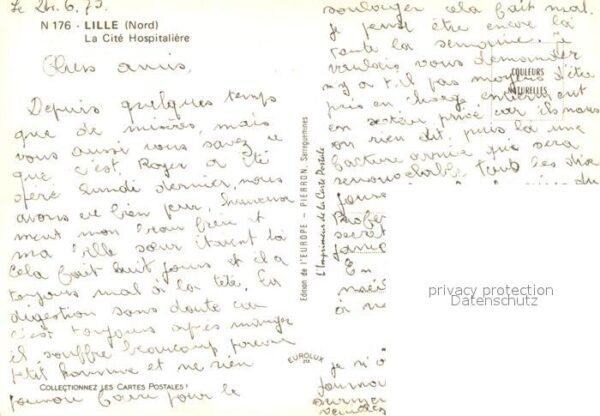 le 24.6.73
N 176 - LILLE (Nord)
La Cité Hospitalière
Chers amis,
Depuis quelques temps
que de misères, mais
vous aussi vous savez ce
que c'est. Roger a été
opéré lundi dernier, nous
avons eu bien peur, heureuse
ment mon beau frère et
ma belle sœur étaient là
cela fait huit jours et il a
toujours mal à la tête. La
digestion sans doute car
c'est toujours après manger
il souffre beaucoup pauvre
petit homme et ne rien
pouvoir faire pour le
COLLECTIONNEZ LES CARTES POSTALES !
Edition de l'EUROPE - PIERRON, Sarreguemines
L'Imprimeur de la Carte Postale
EUROLUX
COULEURS
NATURELLES
soulager cela fait mal.
Je pense être encore là
toute la semaine. Je
voulais vous demander
n'y a t.il pas moyen d'être
pris en charge entièrement
en secteur privé car ils nous
on rien dit, puis là une
facture arrivée que sera
renouvelable tous les dix
jours
secret
En
à ne
je n'o
privacy protection
Datenschutz